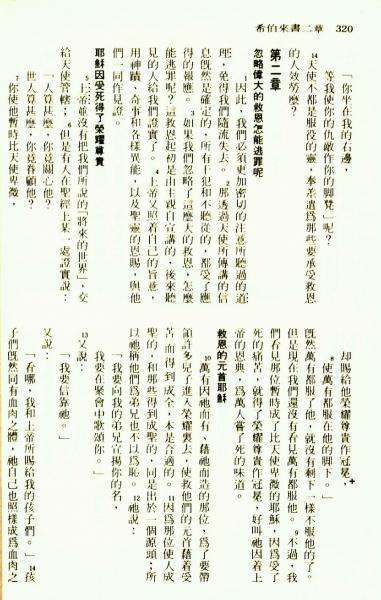 希伯來書二章　320
「你坐在我的右邊，
等我使你的仇敵作你的脚凳」呢？
14天使不都是服役的靈，奉差遣爲那些要承受救恩
的人效勞麼？
第二章
忽略偉大的救恩怎能逃罪呢
1因此，我們必須更加密切的注意所聽過的道
理，免得我們隨流失去。2那透過天使所傳講的信
息旣然是確定的，所有干犯和不聽從的，都受了應
得的報應。3如果我們忽略了這麼大的救恩，怎麼
能逃罪呢？這救恩起初是由主親自宣講的，後來聽
見的人給我們證實了。4上帝又照着自己的旨意，
用神蹟、奇事和各樣異能，以及聖靈的恩賜，與他
們一同作見證。
耶穌因受死得了榮耀尊貴
5上帝並沒有把我們所說的「將來的世界」，交
給天使管轄；6但是有人在聖經上某一處證實說：
「人算甚麼，你竟關心他？
世人算甚麼，你竟眷顧他？
7你使他暫時比天使卑微，
却賜給他榮耀尊貴作冠冕，
8使萬有都服在他的脚下。」
旣然萬有都服了他，就沒有剩下一樣不服他的了。
但是現在我們還沒有看見萬有都服他。9不過，我
們看見那位暫時成了比天使卑微的耶穌，因爲受了
死的痛苦，就得了榮耀尊貴作冠冕，好叫祂因着上
帝的恩典，爲萬人嘗了死的味道。
救恩的元首耶穌
10萬有因祂而有、藉祂而造的那位，爲了要帶
領許多兒子進入榮耀裏去，使救他們的元首藉着受
苦而得到成全，本是合適的。11因爲那位使人成
聖的，和那些得到成聖的，同是出於一個源頭；所
以祂稱他們爲弟兄也不以爲恥。12祂說：
「我要向我的弟兄宣揚你的名，
我要在聚會中歌頌你。」
13又說：
「我要信靠祂。」
又說：
「看哪，我和上帝所賜給我的孩子們。」14孩
子們旣然同有血肉之體，祂自己也照樣成爲血肉之